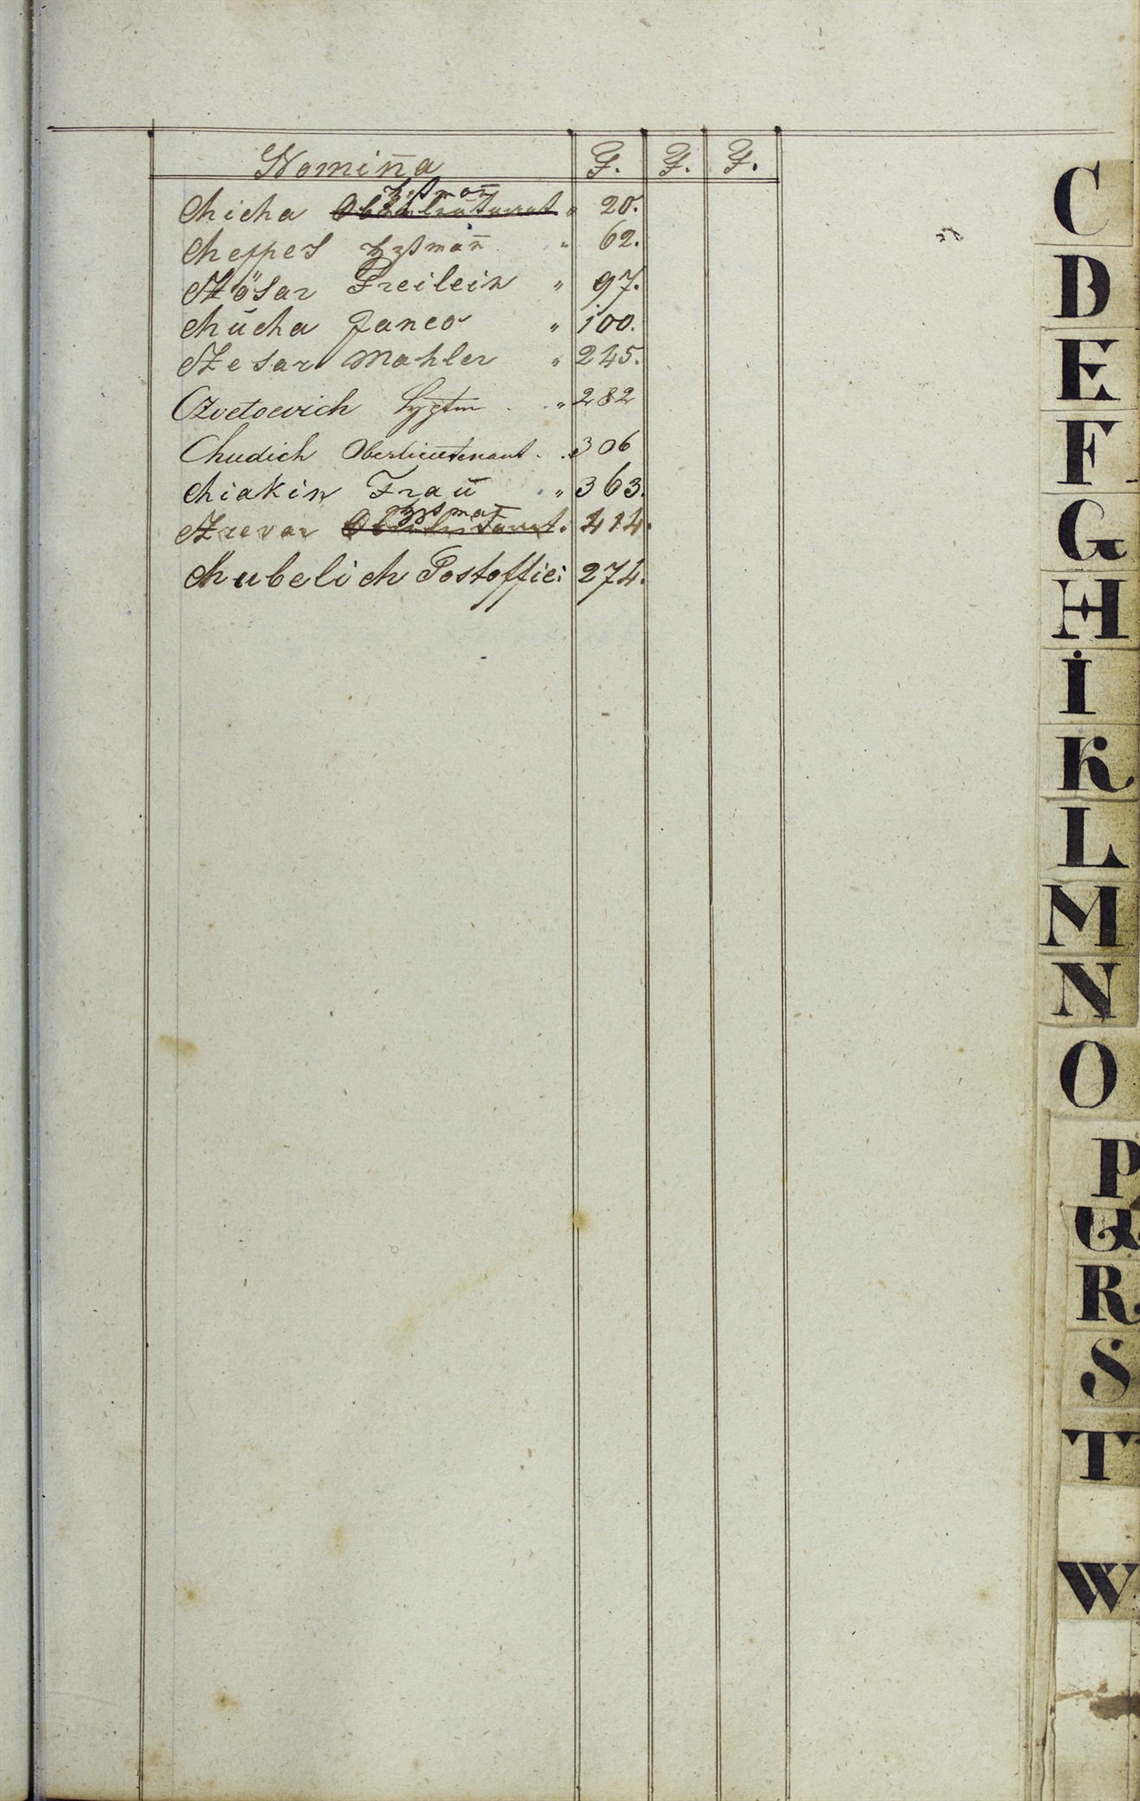 Nomina F. F. F.
Chicha Hptman̄ Oberlieutenant " 20.
Cheppes Hptman̄ " 62.
Czösar Freilein " 97.
Chucha Janco " 100.
Czesar Mahler " 245.
Czvetoevich Hptm " 282
Chudich Oberlieutenant . . 306
Chiakin Frau " 363.
Czrevar Hptman Oberlieutenant . 414.
Chubelich Postoffici: 274.
C
D
E
F
G
H
I
K
L
M
N
O
P
Q
R
S
T
W